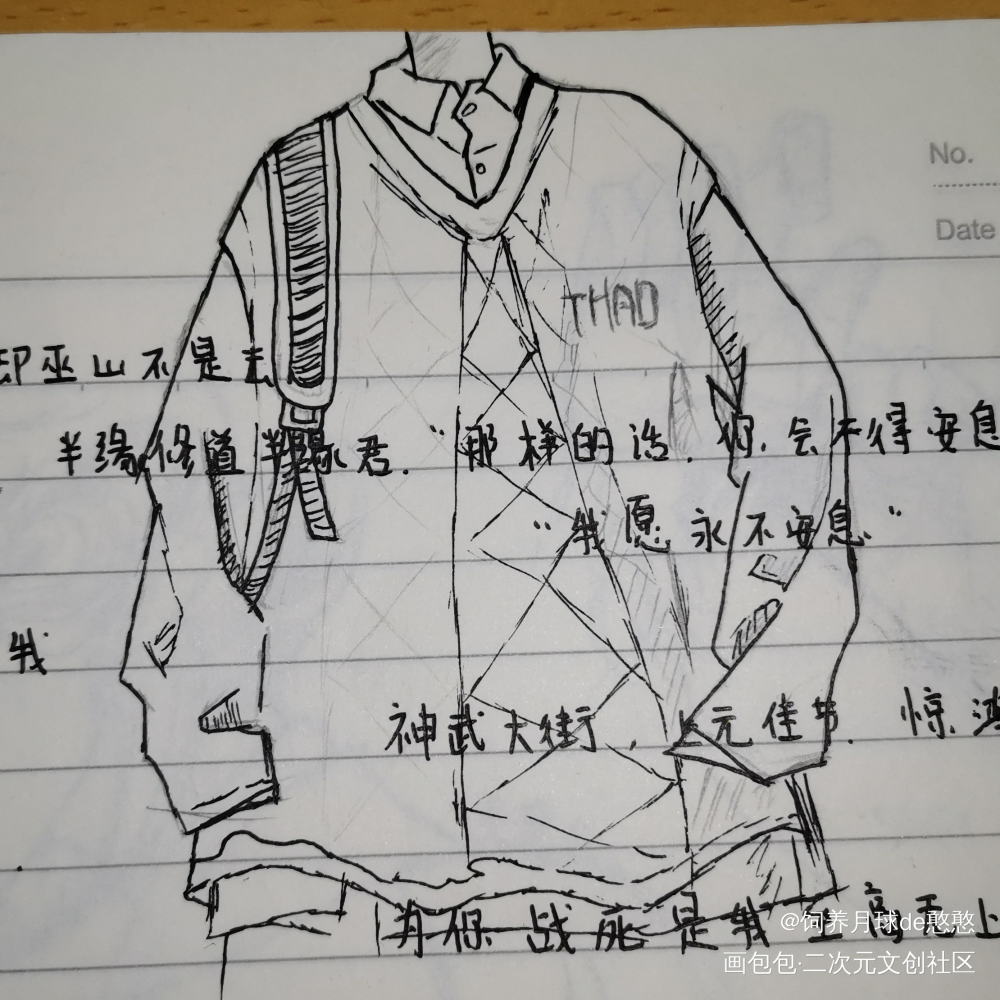 No.
Date
THAD
却巫山不是云
半缘修道半缘君. "那样的话, 你会不得安息
"我愿永不安息"
我
神武大街, 上元佳节. 惊鸿
为你战死是我至高无上
@饲养月球de憨憨
画包包·二次元文创社区